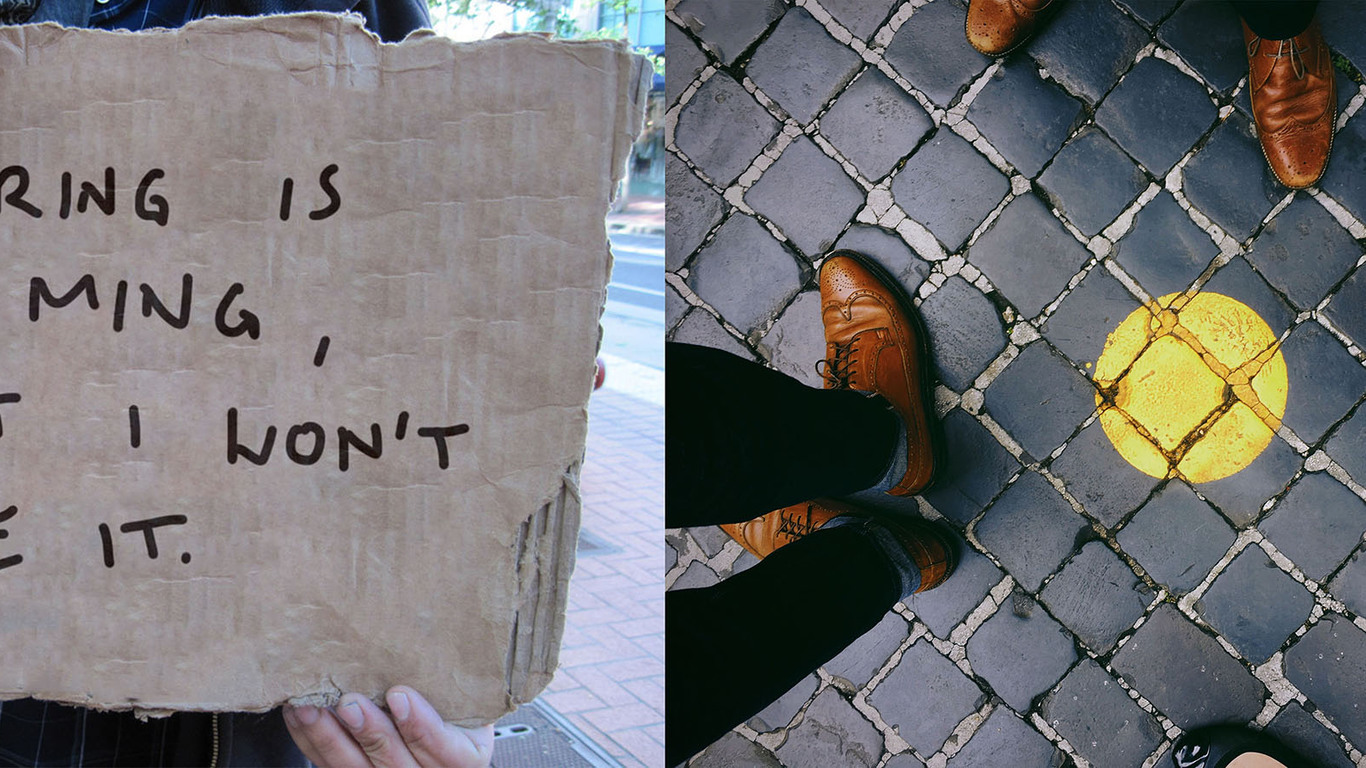 RING IS
MING,
I WON'T
IT.